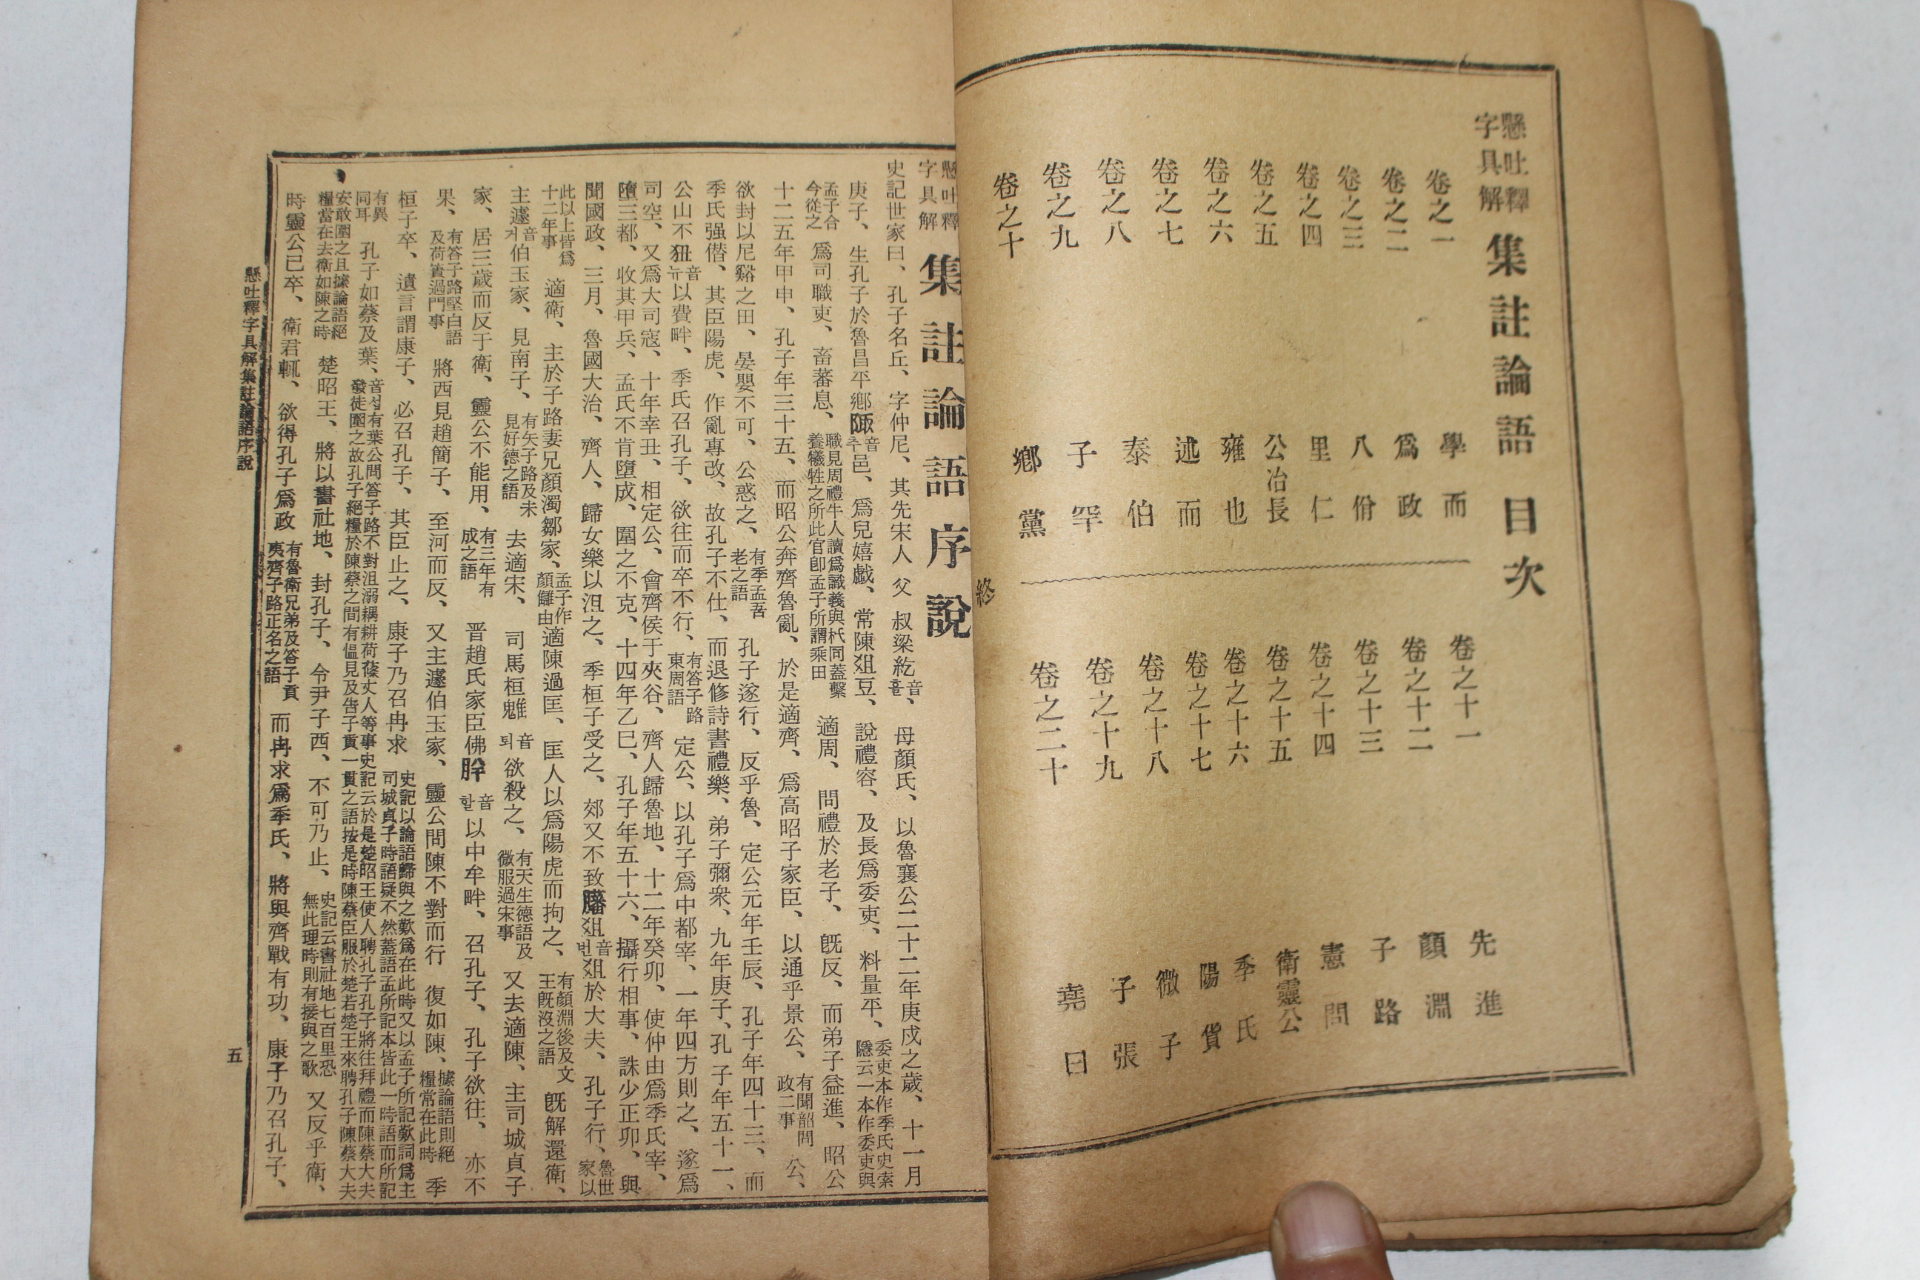 懸吐釋字具解 集註論語目次
卷之一 學而
卷之二 爲政
卷之三 八佾
卷之四 里仁
卷之五 公冶長
卷之六 雍也
卷之七 述而
卷之八 泰伯
卷之九 子罕
卷之十 鄕黨
卷之十一 先進
卷之十二 顏淵
卷之十三 子路
卷之十四 憲問
卷之十五 衛靈公
卷之十六 季氏
卷之十七 陽貨
卷之十八 微子
卷之十九 子張
卷之二十 堯曰
終
懸吐釋字具解 集註論語序說
史記世家曰、孔子名丘、字仲尼、其先宋人 父 叔梁紇音흘、母顏氏、以魯襄公二十二年庚戍之歲、十一月
庚子、生孔子於魯昌平鄕陬音추邑、爲兒嬉戱、常陳爼豆、說禮容、及長爲委吏、料量平、委吏本作季氏史索隱云一本作委吏與
孟子合今從之 爲司職吏、畜蕃息、職見周禮牛人讀爲樴義與杙同蓋繫養犧牲之所此官卽孟子所謂乘田 適周、問禮於老子、旣反、而弟子益進、昭公
二十五年甲申、孔子年三十五、而昭公奔齊魯亂、於是適齊、爲高昭子家臣、以通乎景公、有聞韶問政二事 公、
欲封以尼谿之田、晏嬰不可、公惑之、有季孟吾老之語 孔子遂行、反乎魯、定公元年壬辰、孔子年四十三、而
季氏强僣、其臣陽虎、作亂專政、故孔子不仕、而退修詩書禮樂、弟子彌衆、九年庚子、孔子年五十一、
公山不狃音뉴以費畔、季氏召孔子、欲往而卒不行、有答子路東周語 定公、以孔子爲中都宰、一年四方則之、遂爲
司空、又爲大司寇、十年辛丑、相定公、會齊侯于夾谷、齊人歸魯地、十二年癸卯、使仲由爲季氏宰、
墮三都、收其甲兵、孟氏不肯墮成、圍之不克、十四年乙巳、孔子年五十六、攝行相事、誅少正卯、與
聞國政、三月、魯國大治、齊人、歸女樂以沮之、季桓子受之、郊又不致膰音번爼於大夫、孔子行、魯世家以
此以上皆爲十二年事 適衛、主於子路妻兄顏濁鄒家、孟子作顏讎由適陳過匡、匡人以爲陽虎而拘之、有顏淵後及文王旣沒之語 旣解還衛、
主蘧音거伯玉家、見南子、有矢子路及未見好德之語 去適宋、司馬桓魋音퇴欲殺之、有天生德語及微服過宋事 又去適陳、主司城貞子
家、居三歲而反于衛、靈公不能用、有三年有成之語 晋趙氏家臣佛肸音힐以中牟畔、召孔子、孔子欲往、亦不
果、有答子路堅白語及荷蕢過門事 將西見趙簡子、至河而反、又主蘧伯玉家、靈公問陳不對而行 復如陳、據論語則絕糧當在此時 季
桓子卒、遺言謂康子、必召孔子、其臣止之、康子乃召冉求 史記以論語歸與之歎爲在此時又以孟子所記歎詞爲主司城貞子時語疑不然蓋語孟所記本皆此一時語而所記
有異同耳 孔子如蔡及葉、音섭有葉公問答子路不對沮溺耦耕荷蓧丈人等事史記云於是楚昭王使人聘孔子孔子將往拜禮而陳蔡大夫發徒圍之故孔子絕糧於陳蔡之間有慍見及告子貢一貫之語按是時陳蔡臣服於楚若楚王來聘孔子陳蔡大夫
安敢圍之且據論語絕糧當在去衛如陳之時 楚昭王、將以書社地、封孔子、令尹子西、不可乃止、史記云書社地七百里恐無此理時則有接輿之歌 又反乎衛、
時靈公已卒、衛君輒、欲得孔子爲政 有魯衛兄弟及答子貢夷齊子路正名之語 而冉求爲季氏、將與齊戰有功、康子乃召孔子、
懸吐釋字具解集註論語序說
五